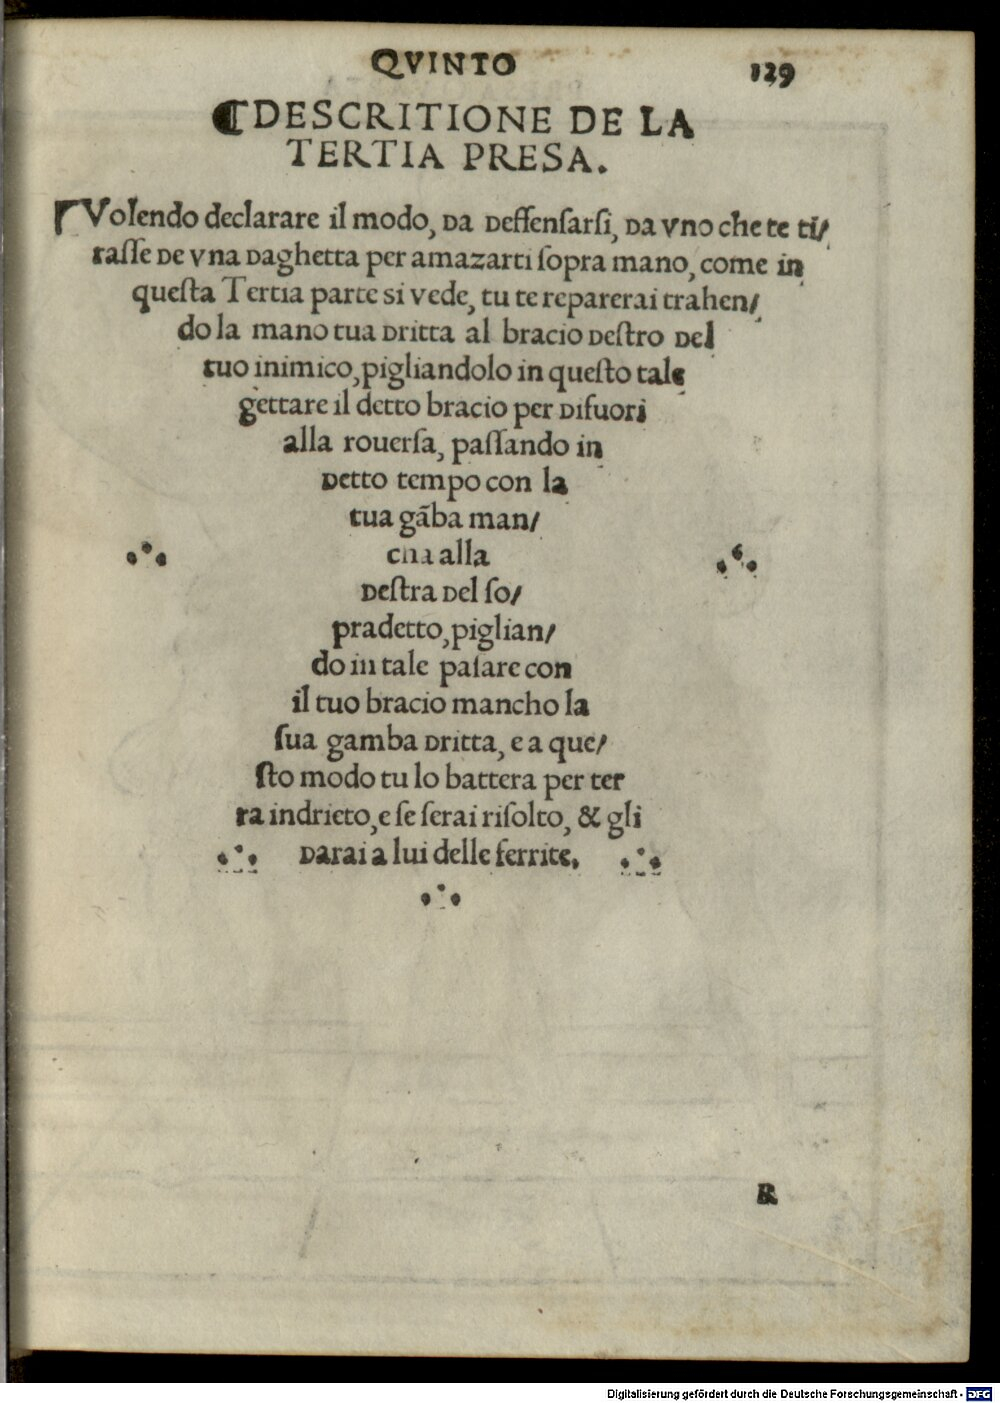 QVINTO 129
⸿DESCRITIONE DE LA
TERTIA PRESA.
Volendo declarare il modo, da deffensarsi, da vno che te ti/
rasse de vna daghetta per amazarti sopra mano, come in
questa Tertia parte si vede, tu te reparerai trahen/
do la mano tua dritta al bracio destro del
tuo inimico, pigliandolo in questo tale
gettare il detto bracio per difuori
alla rouersa, passando in
detto tempo con la
tua gãba man/
cha alla
destra del so/
pradetto, piglian/
do in tale pasare con
il tuo bracio mancho la
sua gamba dritta, e a que/
sto modo tu lo battera per ter
ra indrieto, e se serai risolto, & gli
darai a lui delle ferrite.
R
Digitalisierung gefördert durch die Deutsche Forschungsgemeinschaft - DFG